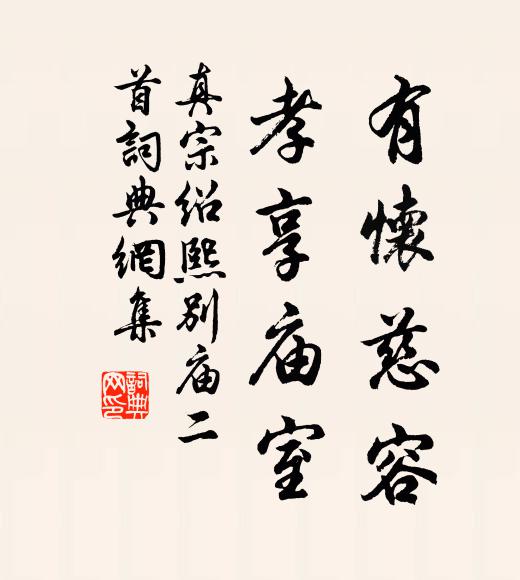 有懷慈容
孝享庙室
真宗绍熙別庙二
首詞典網集
詞典
网印